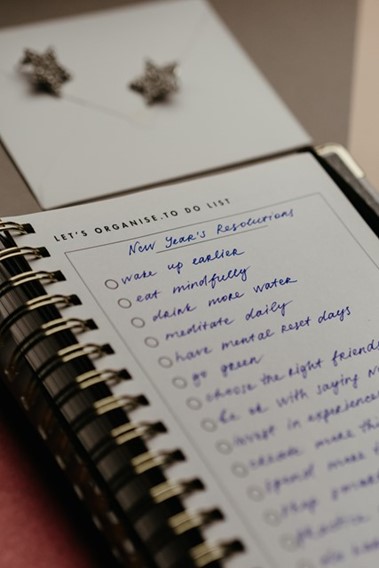 LET'S ORGANISE.TO DO LIST
New Year's Resolutions
wake up earlier
eat mindfully
drink more water
meditate daily
have mental reset days
go green
choose the right friends
be ok with saying
invest in experiences
more
spend more
stop